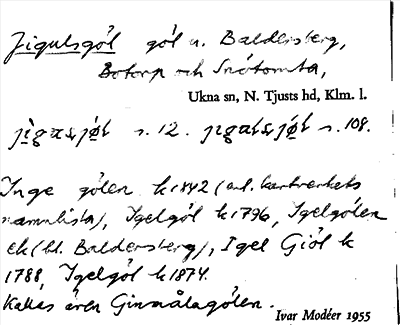 Jigulsgöl göl u. Baldersberg,
Botorp och Snötomta,
Ukna sn, N. Tjusts hd, Klm. l.
s. 12. s. 108.
Inge gölen k 1842 (enl. kartverkets
namnlista), Igelgöl k 1796, Igelgölen
ek (bl. Baldersberg), Igel Giöl k
1788, Igelgöl k 1874.
Kallas även Ginnålagölen.
Ivar Modéer 1955